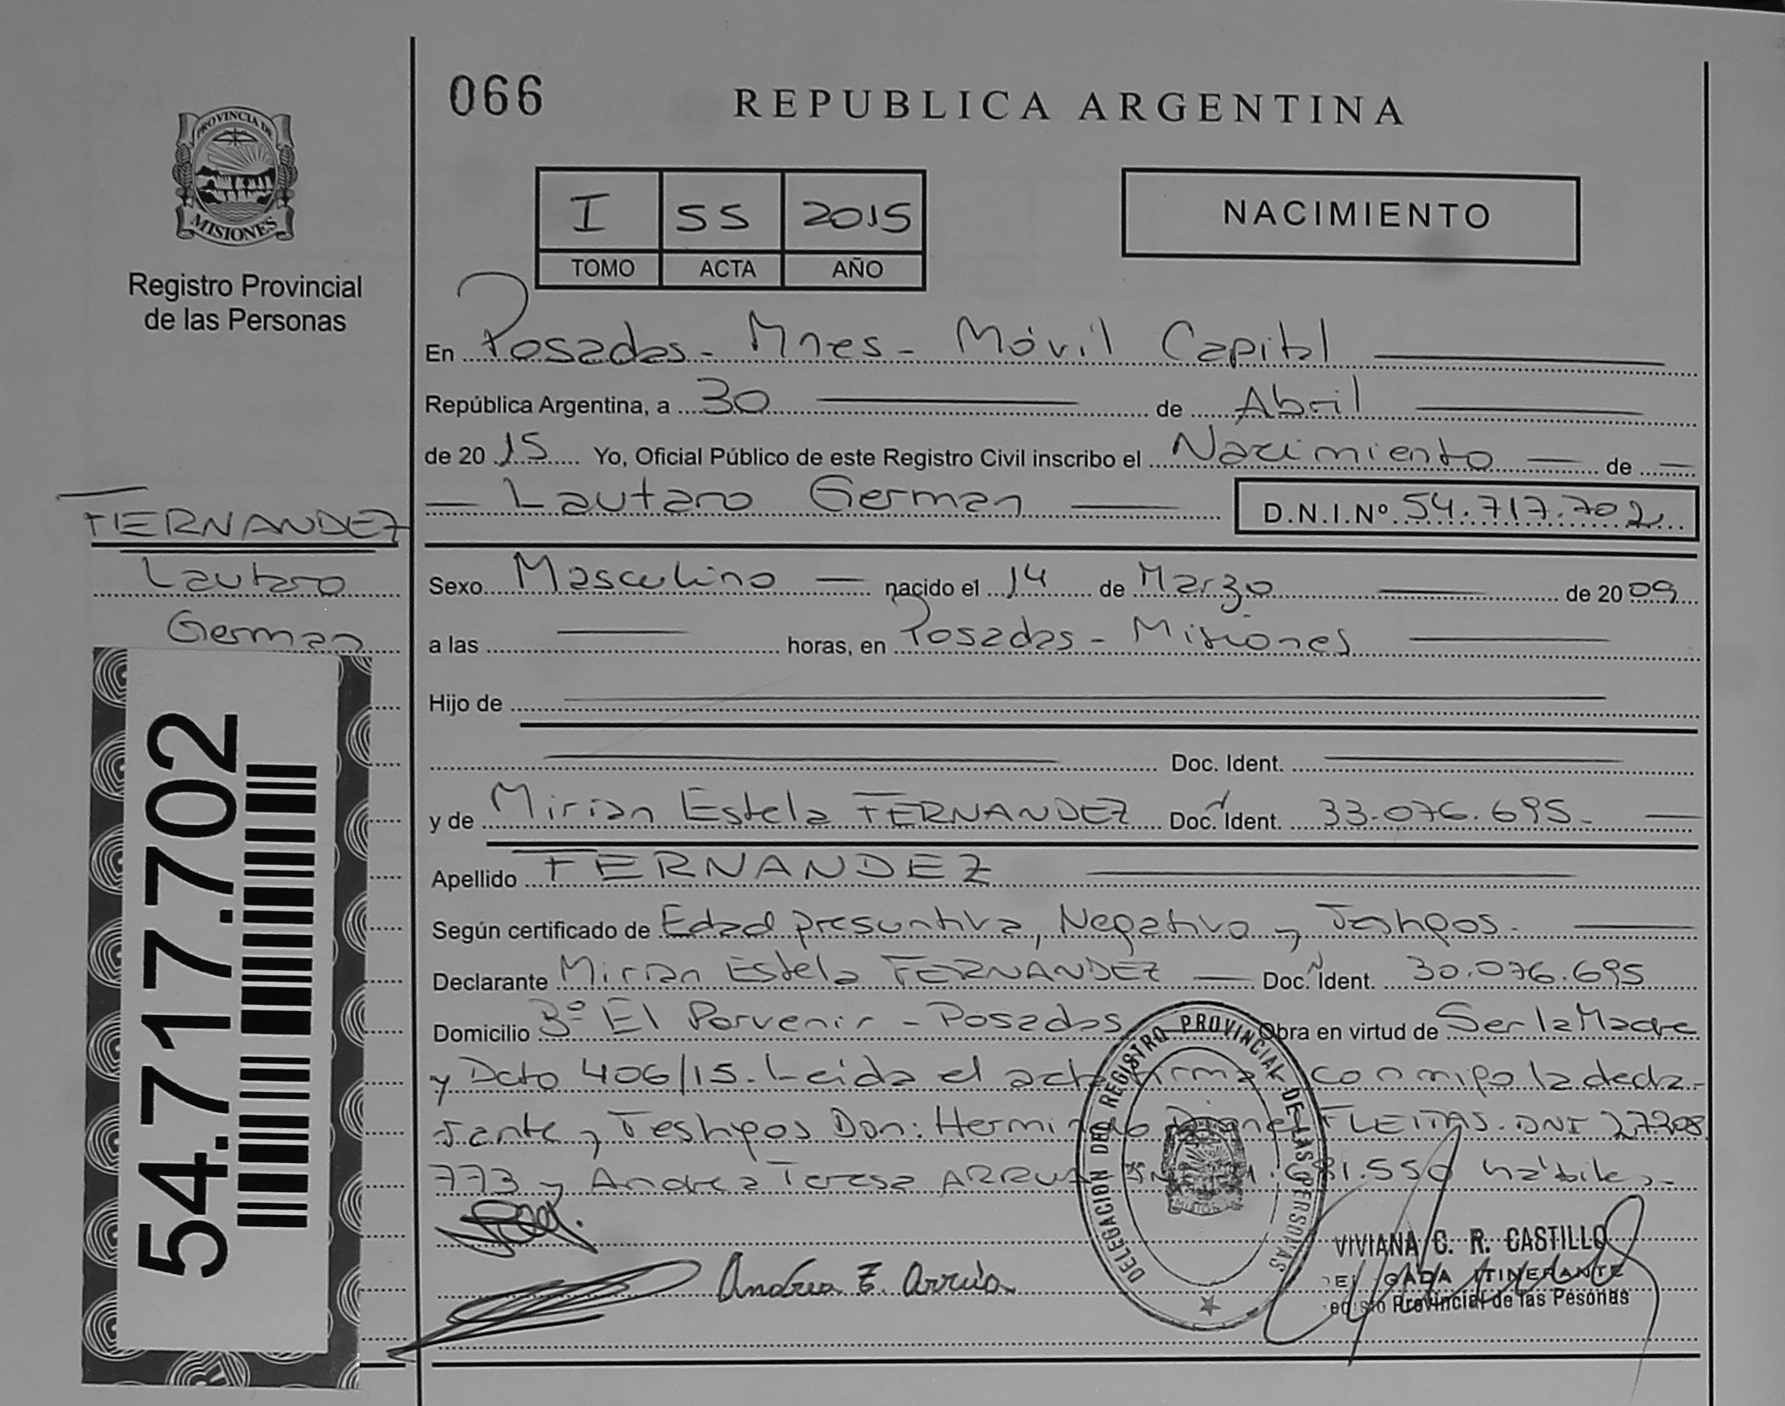 066
REPUBLICA ARGENTINA
PROVINCIA DE
MISIONES
Registro Provincial
de las Personas
I 55 2015
TOMO ACTA AÑO
NACIMIENTO
En Posadas - Mnes - Móvil Capital
República Argentina, a 30 de Abril
de 2015 Yo, Oficial Público de este Registro Civil inscribo el Nacimiento de
Lautaro German D.N.I.Nº 54.717.702
FERNANDEZ
Lautaro
German
Sexo Masculino nacido el 14 de Marzo de 2009
a las horas, en Posadas - Misiones
Hijo de
Doc. Ident.
y de Mirian Estela FERNANDEZ Doc. Ident. 33.076.695.-
Apellido FERNANDEZ
Según certificado de Edad presuntiva, Negativo y Testigos.
Declarante Mirian Estela FERNANDEZ Doc. Ident. 30.076.695
Domicilio Bº El Porvenir - Posadas Obra en virtud de Ser la Madre
y Dcto 406/15. Leida el acta firma conmigo la decla-
rante y Testigos Don: Herminio FLEITAS. DNI 27208
773 y Andrea Teresa 81.550 hábiles.-
Andrea T. Arrúa
DELEGACION DEL REGISTRO PROVINCIAL DE LAS PERSONAS
VIVIANA C. R. CASTILLO
DELEGADA ITINERANTE
Provincial de las Pesonas
54.717.702